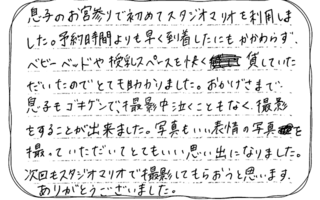 息子のお宮参りで初めてスタジオマリオを利用しま
した。予約時間よりも早く到着したにもかかわらず、
ベビーベッドや授乳スペースを快く貸していた
だいたのでとても助かりました。おかげさまで、
息子もゴキゲンで撮影中泣くこともなく、撮影
をすることが出来ました。写真もいい表情の写真を
撮っていただいてとてもいい思い出になりました。
次回もスタジオマリオで撮影してもらおうと思います。
ありがとうございました。